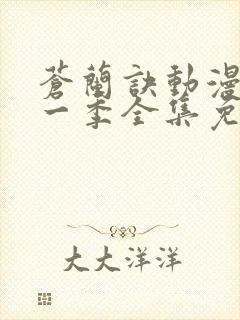 蒼蘭訣動漫
一季全集免
大大洋洋